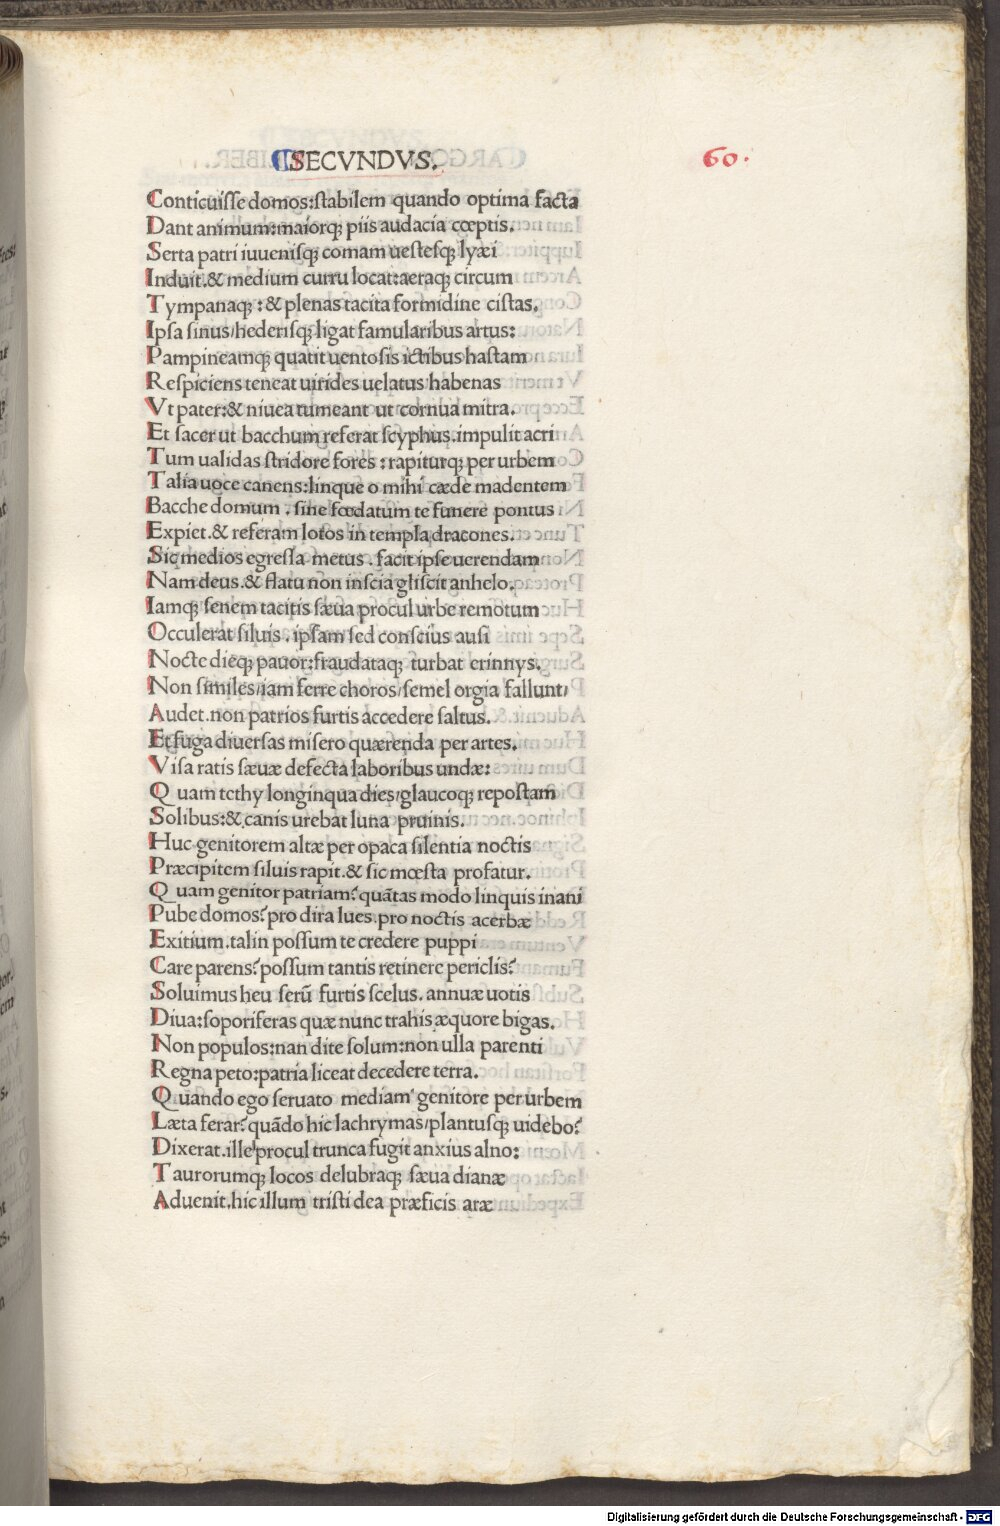 SECVNDVS.
60.
Conticuisse domos:stabilem quando optima facta
Dant animum:maiorq; piis audacia cœptis.
Serta patri iuuenisq; comam uestesq; lyæi
Induit.& medium curru locat:aeraq; circum
Tympanaq; :& plenas tacita formidine cistas.
Ipsa sinus/hederisq; ligat famularibus artus:
Pampineamq; quatit uentosis ictibus hastam
Respiciens teneat uirides uelatus habenas
Vt pater:& niuea tumeant ut cornua mitra.
Et sacer ut bacchum referat scyphus.impulit acri
Tum ualidas stridore fores : rapiturq; per urbem
Talia uoce canens:linque o mihi cæde madentem
Bacche domum . sine fœdatum te funere pontus
Expiet.& referam lotos in templa dracones.
Sic medios egressa metus . facit ipse uerendam
Nam deus.& flatu non inscia gliscit anhelo.
Iamq; senem tacitis sæua procul urbe remotum
Occulerat siluis . ipsam sed conscius ausi
Nocte dieq; pauor:fraudataq; turbat erinnys.
Non similes/iam ferre choros/semel orgia fallunt/
Audet.non patrios furtis accedere saltus.
Et fuga diuersas misero quærenda per artes.
Visa ratis sæuæ defecta laboribus undæ:
Q uam tethy longinqua dies/glaucoq; repostam
Solibus:& canis urebat luna pruinis.
Huc genitorem altæ per opaca silentia noctis
Præcipitem siluis rapit.& sic mœsta profatur.
Q uam genitor patriam? quãtas modo linquis inani
Pube domos? pro dira lues.pro noctis acerbæ
Exitium.talin possum te credere puppi
Care parens? possum tantis retinere periclis?
Soluimus heu serũ furtis scelus. annuæ uotis
Diua:soporiferas quæ nunc trahis æquore bigas.
Non populos:nan dite solum:non ulla parenti
Regna peto:patria liceat decedere terra.
Quando ego seruato mediam genitore per urbem
Læta ferar? quãdo hic lachrymas/plantusq; uidebo?
Dixerat.ille procul trunca fugit anxius alno:
Taurorumq; locos delubraq; sæua dianæ
Aduenit.hic illum tristi dea præficis aræ
Digitalisierung gefördert durch die Deutsche Forschungsgemeinschaft - DFG